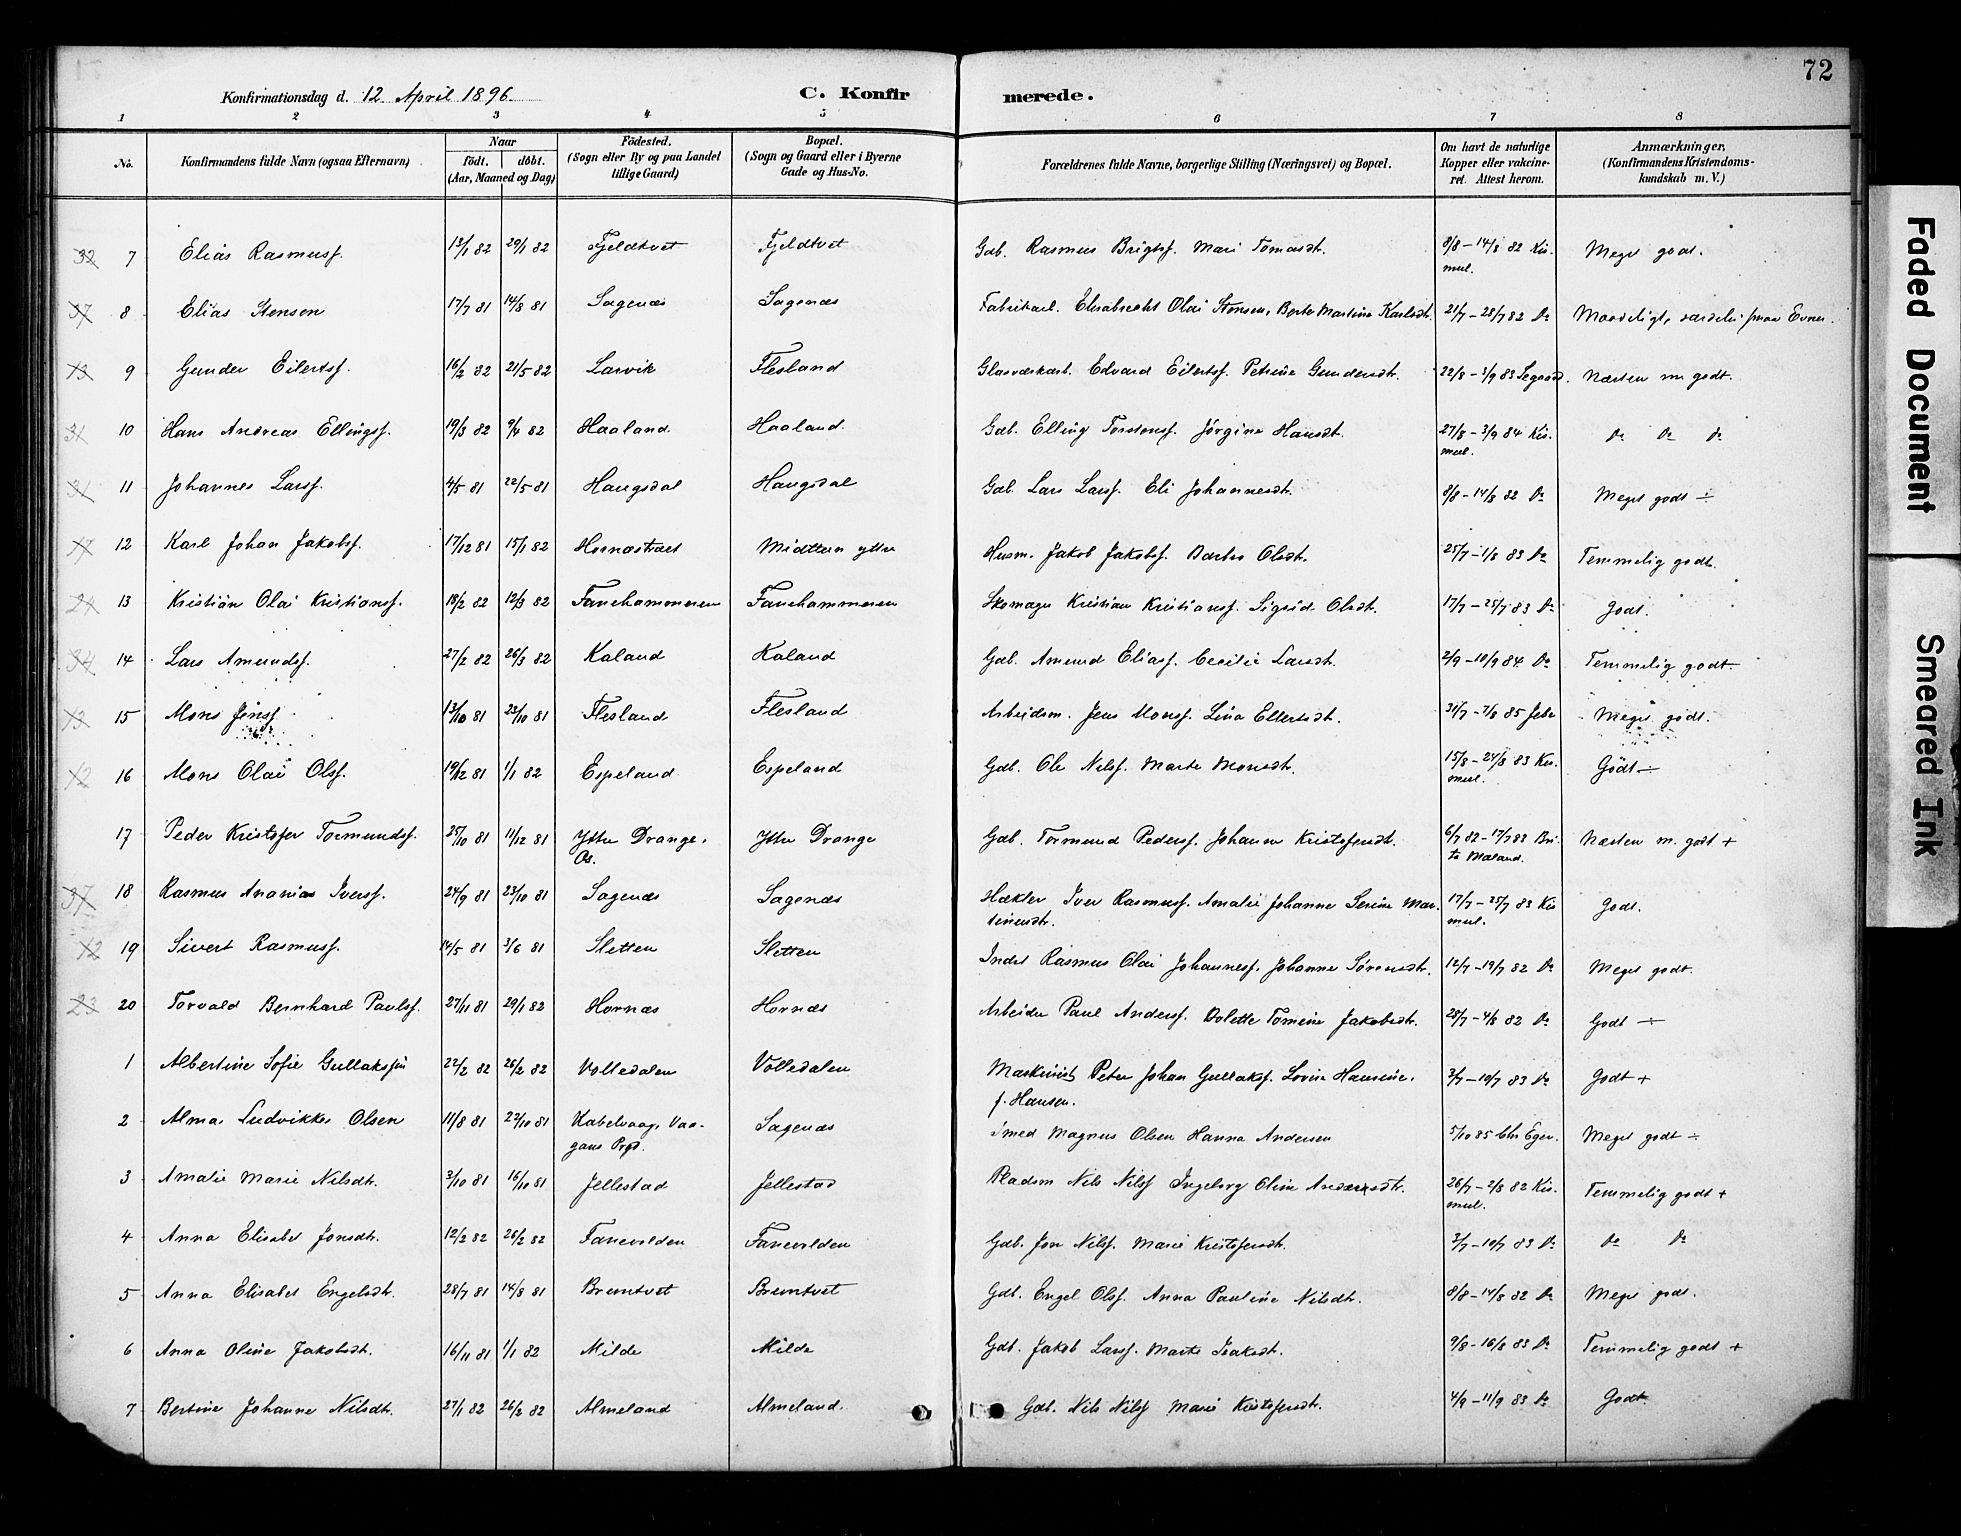 72
Konfirmationsdag d. 12 April 1896. C. Konfirmerede.
1 2 3 4 5 6 7 8
No. Konfirmandens fulde Navn (ogsaa Efternavn) Naar födt. döbt. (Aar, Maaned og Dag) Födested. (Sogn eller By og paa Landet tillige Gaard) Bopæl. (Sogn og Gaard eller i Byerne Gade og Hus-No. Forældrenes fulde Navne, borgerlige Stilling (Næringsvei) og Bopæl. Om havt de naturlige Kopper eller vakcineret. Attest herom. Anmærkninger. (Konfirmandens Kristendomskundskab m. V.)
32 7 Elias Rasmusf. 13/1 82 29/1 82 Fjeldtvet Fjeldtvet Gdb. Rasmus Brigtsf. Mari Tomasdt. 8/8 – 14/8 82 Kismul. Meget godt.
37 8 Elias Stensen 17/7 81 14/8 81 Sagenæs Sagenæs Fabrikarb. Olai Stensen, Berte Martine Karlsdt. 21/7 – 28/7 82 Do Maadeligt, smaa Evner.
13 9 Gunder Eilertsf. 16/2 82 21/5 82 Larvik Flesland Glasværksarb. Edvard Eilertsf. Petrine Gundersdt. 22/8 – 1/9 83 Næsten m godt.
31 10 Hans Andreas Ellingsf. 19/3 82 9/4 82 Haaland Haaland Gdb. Elling Torstensf. Jörgine Hansdt. 27/8 – 3/9 84 Kismul. Do Do Do
31 11 Johannes Larsf. 4/5 81 22/5 81 Haugsdal Haugsdal Gdb. Lars Larsf. Eli Johannesdt. 8/8 – 14/8 82 Do Meget godt ÷
17 12 Karl Johan Jakobsf. 17/12 81 15/1 82 Hornæstræet Midttun ytre Husm. Jakob Jakobsf. Barbro Olsdt. 25/7 – 1/8 83 Do Temmelig godt.
24 13 Kristian Olai Kristiansf. 18/2 82 12/3 82 Fanehammeren Fanehammeren Skomager Kristian Kristiansf. Sigrid Olsdt. 17/7 – 25/7 83 Do Godt.
34 14 Lars Amundsf. 27/2 82 26/3 82 Kaland Kaland Gdb. Amund Eliasf. Cecilie Larsdt. 2/9 – 10/9 84 Do Temmelig godt
13 15 Mons Jensf. 13/10 81 23/10 81 Flesland Flesland Arbeidsm. Jens Monsf. Lina Ellertsdt. 31/7 – 7/8 85 Meget godt.
12 16 Mons Olai Olsf. 19/12 81 1/1 82 Espeland Espeland Gdb. Ole Nilsf. Marte Monsdt. 15/8 – 24/8 83 Kismul. Godt ÷
17 Peder Kristofer Tormundsf. 25/10 81 11/12 81 Ytre Drange, Os. Ytre Drange Gdb. Tormund Pedersf. Johanne Kristofersdt. 6/7 82 – 17/7 82 Brite Maland. Næsten m. godt +
37 18 Rasmus Ananias Iversf. 24/9 81 23/10 81 Sagenæs Sagenæs Hækler Iver Rasmusf. Amalie Johanne Serine Martinusdt. 17/7 – 25/7 83 Kismul. Godt.
12 19 Sivert Rasmusf. 14/5 81 3/6 81 Sletten Sletten Inds Rasmus Olai Johannesf. Johanne Sörensdt. 12/7 – 19/7 82 Do Meget godt.
23 20 Torvald Bernhard Paulsf. 27/11 81 29/1 82 Hornæs Hornæs Arbeider Paul Andersf. Bolette Tomine Jakobsdt. 28/7 – 4/8 82 Do Godt ÷
1 Albertine Sofie Gullaksen 22/2 82 26/2 82 Volledalen Volledalen Maskinist Peter Johan Gullaksf. Lovise Hansine, f. Hansen. 3/7 – 10/7 83 Do Godt +
2 Alma Ludvikke Olsen 11/8 81 22/10 81 Kabelvaag, Vaagans Prgd. Sagenæs Smed Magnus Olsen Hanna Andersen 5/10 85 Chr Eger. Meget godt ÷
3 Amalie Marie Nilsdt. 3/10 81 16/10 81 Jellestad Jellestad Pladsm Nils Nilsf Ingeborg Oline Andersdt. 26/7 – 2/8 82 Kismul. Temmelig godt +
4 Anna Elisabet Jonsdt. 12/2 82 26/2 82 Fanevolden Fanevolden Gdb. Jon Nilsf. Marie Kristofersdt. 3/7 – 10/7 83 Do Do Do
5 Anna Elisabet Engelsdt. 28/7 81 14/8 81 Bruntvet Bruntvet Gdb. Engel Olsf. Anna Pauline Nilsdt. 8/8 – 14/8 82 Do Meget godt.
6 Anna Oline Jakobsdt. 16/11 81 1/1 82 Milde Milde Gdb. Jakob Larsf. Marte Isaksdt. 9/8 – 16/8 83 Do Temmelig godt +
7 Bertine Johanne Nilsdt. 27/1 82 26/2 82 Almeland Almeland. Gdb. Nils Nilsf Marie Kristofersdt. 4/9 – 11/9 83 Do Godt.
Faded Document
Smeared Ink